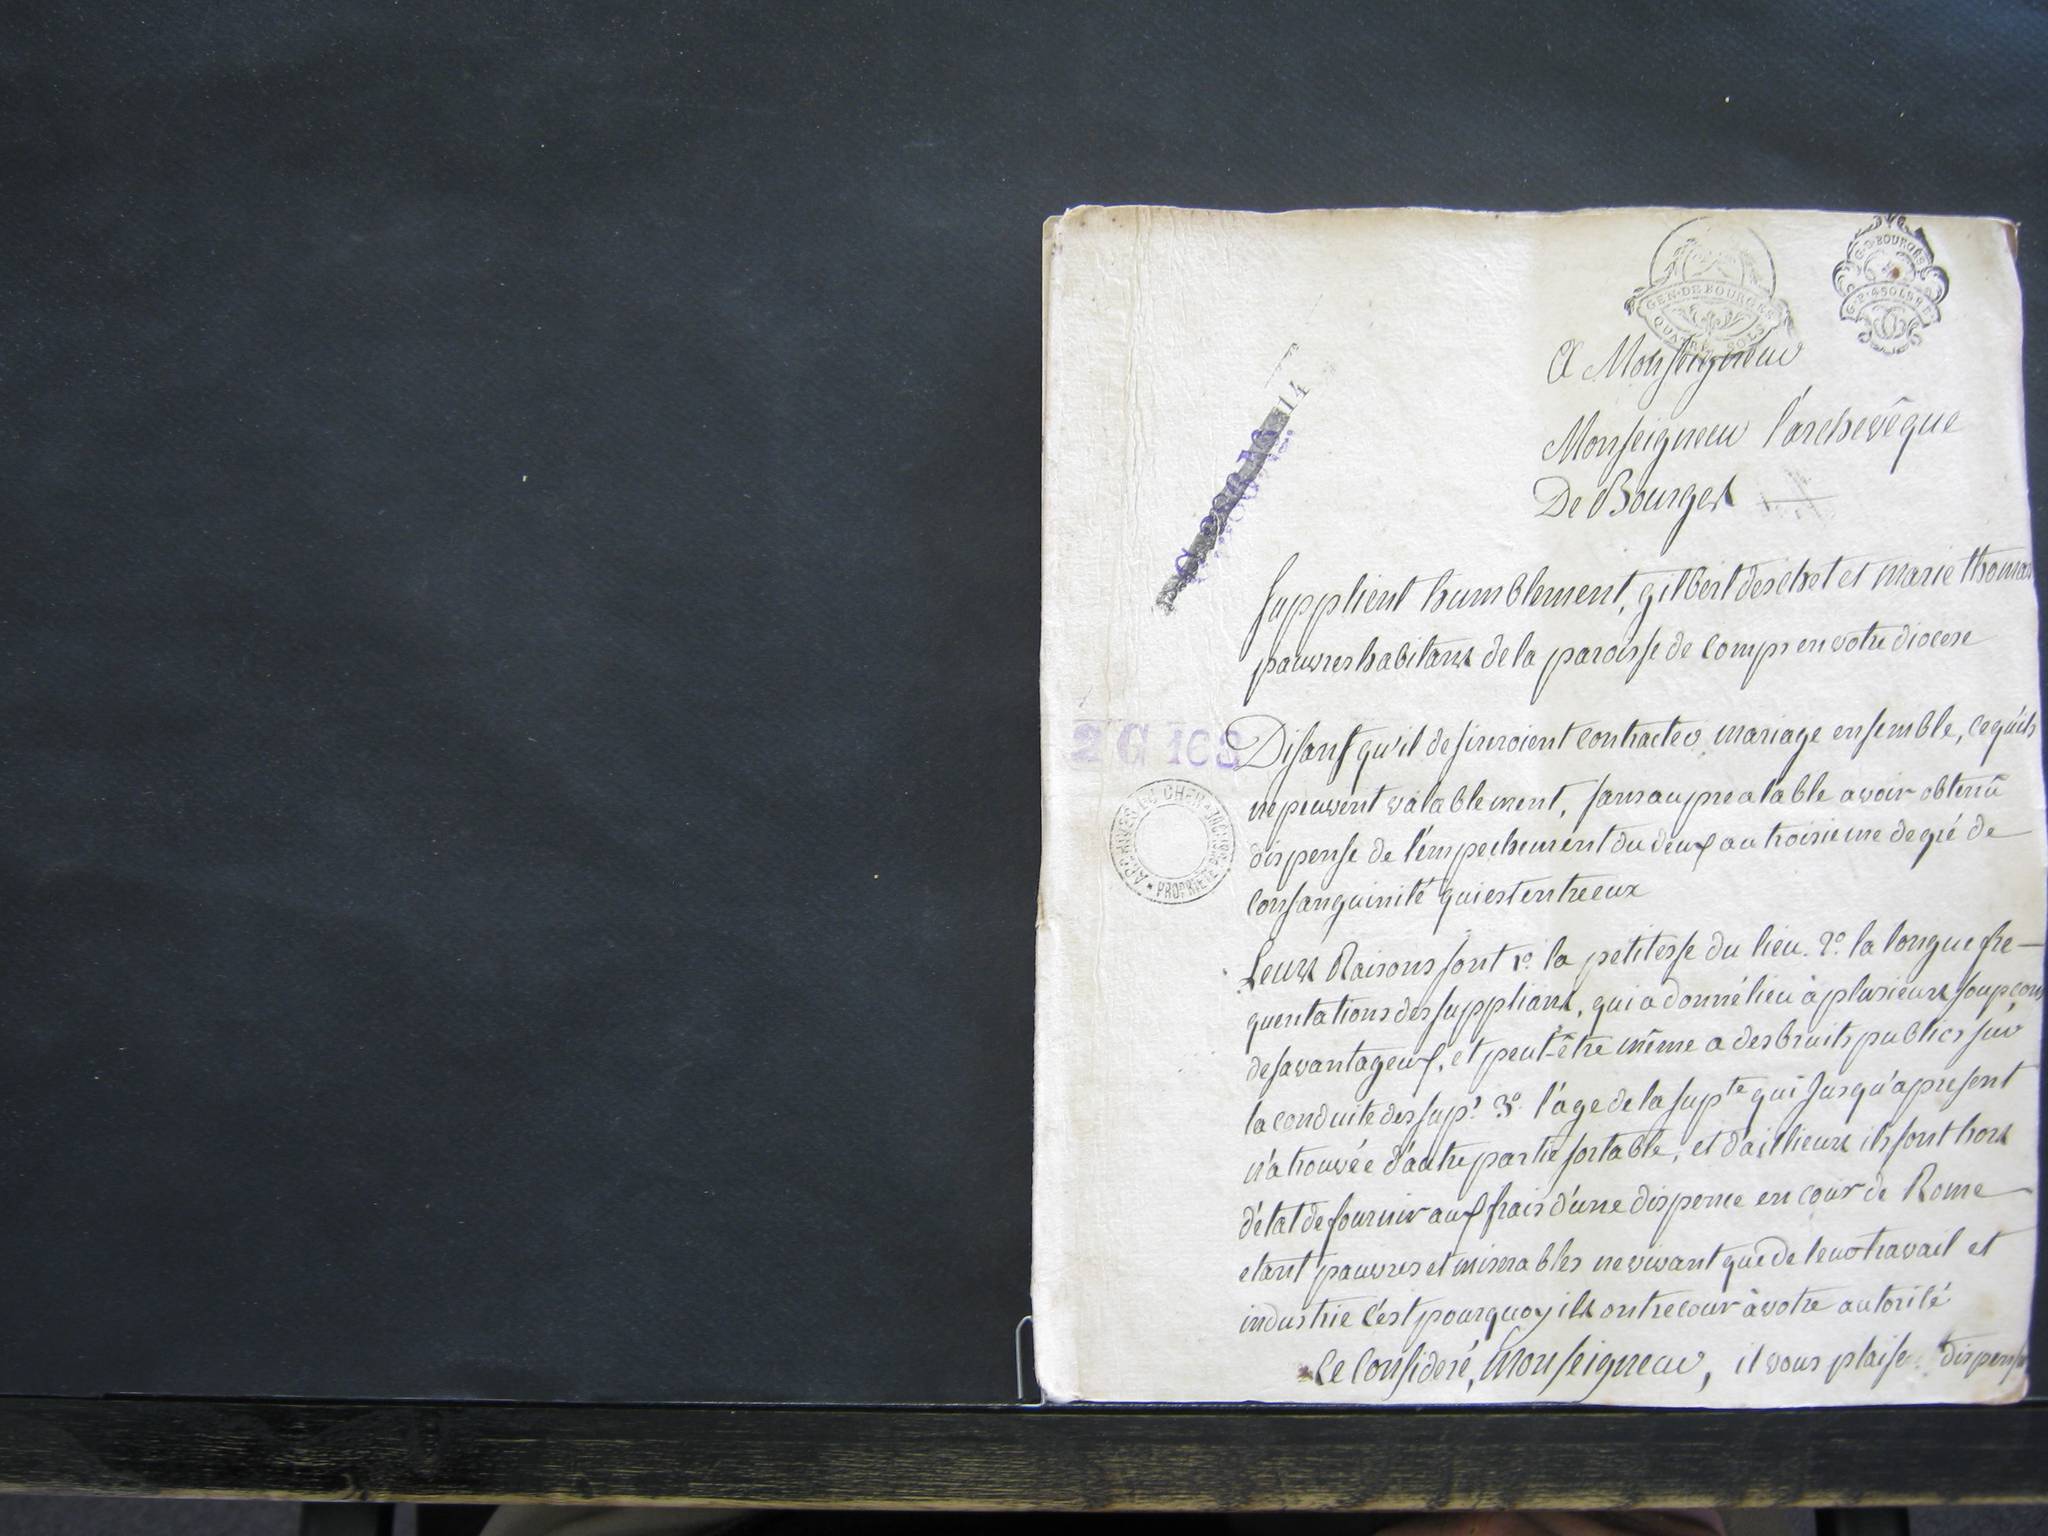 GEN·DE BOURGES
QUATRE SOLS
G·D·BOURGES
A Monseigneur
14
Monseigneur l'archevêque
De Bourges
supplient humblement, gilbert deschet et marie thomas
pauvres habitans de la paroisse de comps en votre diocese
2 G 168
Disant qu'il desireroient contracter mariage ensemble, ce qu'ils
ne peuvent valablement, sans au prealable avoir obtenû
ARCHIVES DU CHER ★ PROPRIETE PUBLIQUE
dispense de l'empechement du deux au troisieme degré de
consanguinité qui est entre eux
Leurs Raisons sont 1º. la petitesse du lieu. 2º. la longue fre-
quentations des supplians, qui a donné lieu à plusieurs soupçons
desavantageux, et peut-être même a des bruits publics sur
la conduite des sup.s 3º. l'age de la supte qui jusqu'a present
n'a trouvée d'autre partie sortable, et d'aillieurs ils sont hors
d'état de fournir aux frais d'une dispence en cour de Rome
etant pauvres et miserables ne vivant que de leur travail et
industrie c'est pourquoy ils ont recour à votre autorité
Ce Consideré, Monseigneur, il vous plaise dispense